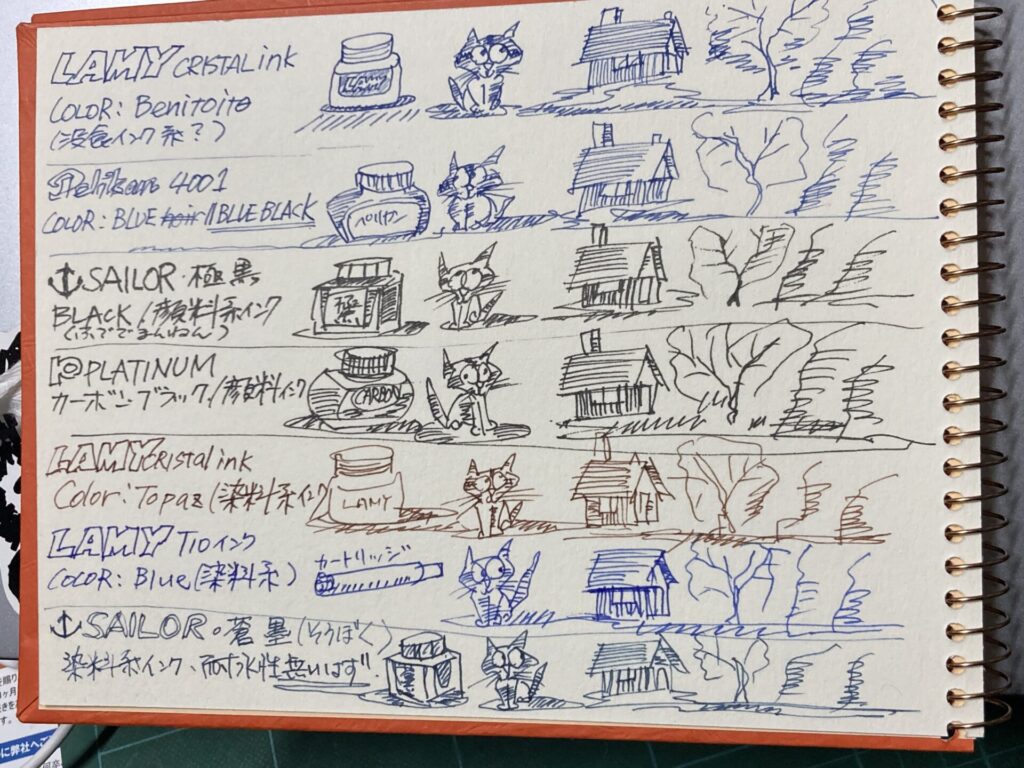 LAMY CRISTAL ink
COLOR: Benitoite
(没食インク系?)
Pelikan 4001
COLOR: BLUE /BLUE BLACK
ペリカン
SAILOR・極黒
BLACK/顔料系インク
PLATINUM
カーボンブラック/顔料インク
CARBON
LAMY cristal ink
Color: Topaz (染料系インク
LAMY
LAMY T10インク
COLOR: Blue(染料系)
カートリッジ
SAILOR・蒼墨(そうぼく)
染料系インク、耐水性無いはず